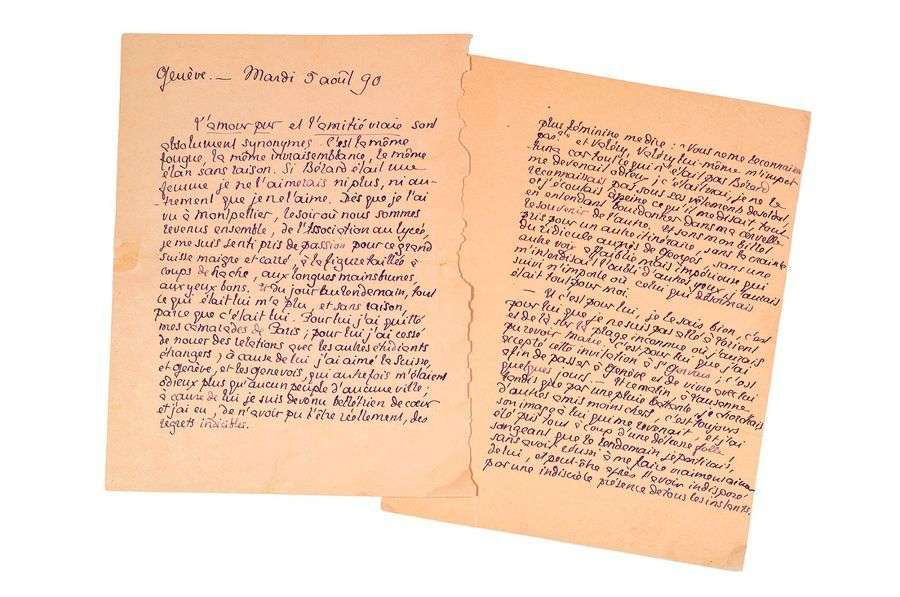 Genève. — Mardi 5 août 90
L'amour pur et l'amitié vraie sont
absolument synonymes. C'est la même
fougue, la même invraisemblance, le même
élan sans raison. Si Bérard était une
femme je ne l'aimerais ni plus, ni au-
trement que je ne l'aime. Dès que je l'ai
vu à Montpellier, le soir où nous sommes
revenus ensemble, de l'Association au lycée,
je me suis senti pris de passion pour ce grand
suisse maigre et carré, à la figure taillée à
coups de hache, aux longues mains brunes,
aux yeux bons. Et du jour au lendemain, tout
ce qui était lui m'a plu, et sans raison,
parce que c'était lui. Pour lui j'ai quitté
mes camarades de Paris ; pour lui j'ai cessé
de nouer des relations avec les autres étudiants
étrangers ; à cause de lui j'ai aimé la Suisse,
et Genève, et les genevois, qui autrefois m'étaient
odieux plus qu'aucun peuple d'aucune ville ;
à cause de lui je suis devenu bellétrien de cœur
et j'ai eu, de n'avoir pu l'être réellement, des
regrets indicibles.
plus féminine me dire : "Vous ne me reconnaissez
pas ?" et Valéry, Valéry lui-même m'impor-
tuna car tout ce qui n'était pas Bérard
me devenait odieux ; c'était vrai : je ne le
reconnaissais pas sous ses vêtements de soldat,
et j'écoutais à peine ce qu'il me disait, tout
en entendant bourdonner dans ma cervelle
le souvenir de l'autre. Et sans mon billet
pris pour un autre itinéraire, sans la crainte
du ridicule auprès de Georges, sans une
autre voix affaiblie mais impérieuse qui
m'interdisait l'oubli d'autres yeux, j'aurais
suivi n'importe où celui qui désormais
était tout pour moi.
— Et c'est pour lui, je le sais bien, c'est
pour lui que je ne suis pas allé à Lorient
et de là sur la plage inconnue où j'aurais
pu revoir Marie. C'est pour lui que j'ai
accepté cette invitation à St Gervais ; c'est
afin de passer à Genève et de vivre avec lui
quelques jours. — Et ce matin, à Lausanne
tandis que par une pluie battante je cherchais
d'autres amis moins chers, c'est toujours
son image à lui qui me revenait, et j'ai
été pris tout à coup d'une détresse folle,
songeant que le lendemain je partirais,
sans avoir réussi à me faire vraiment aimer
de lui, et peut-être après l'avoir indisposé
par une indicible présence de tous les instants.